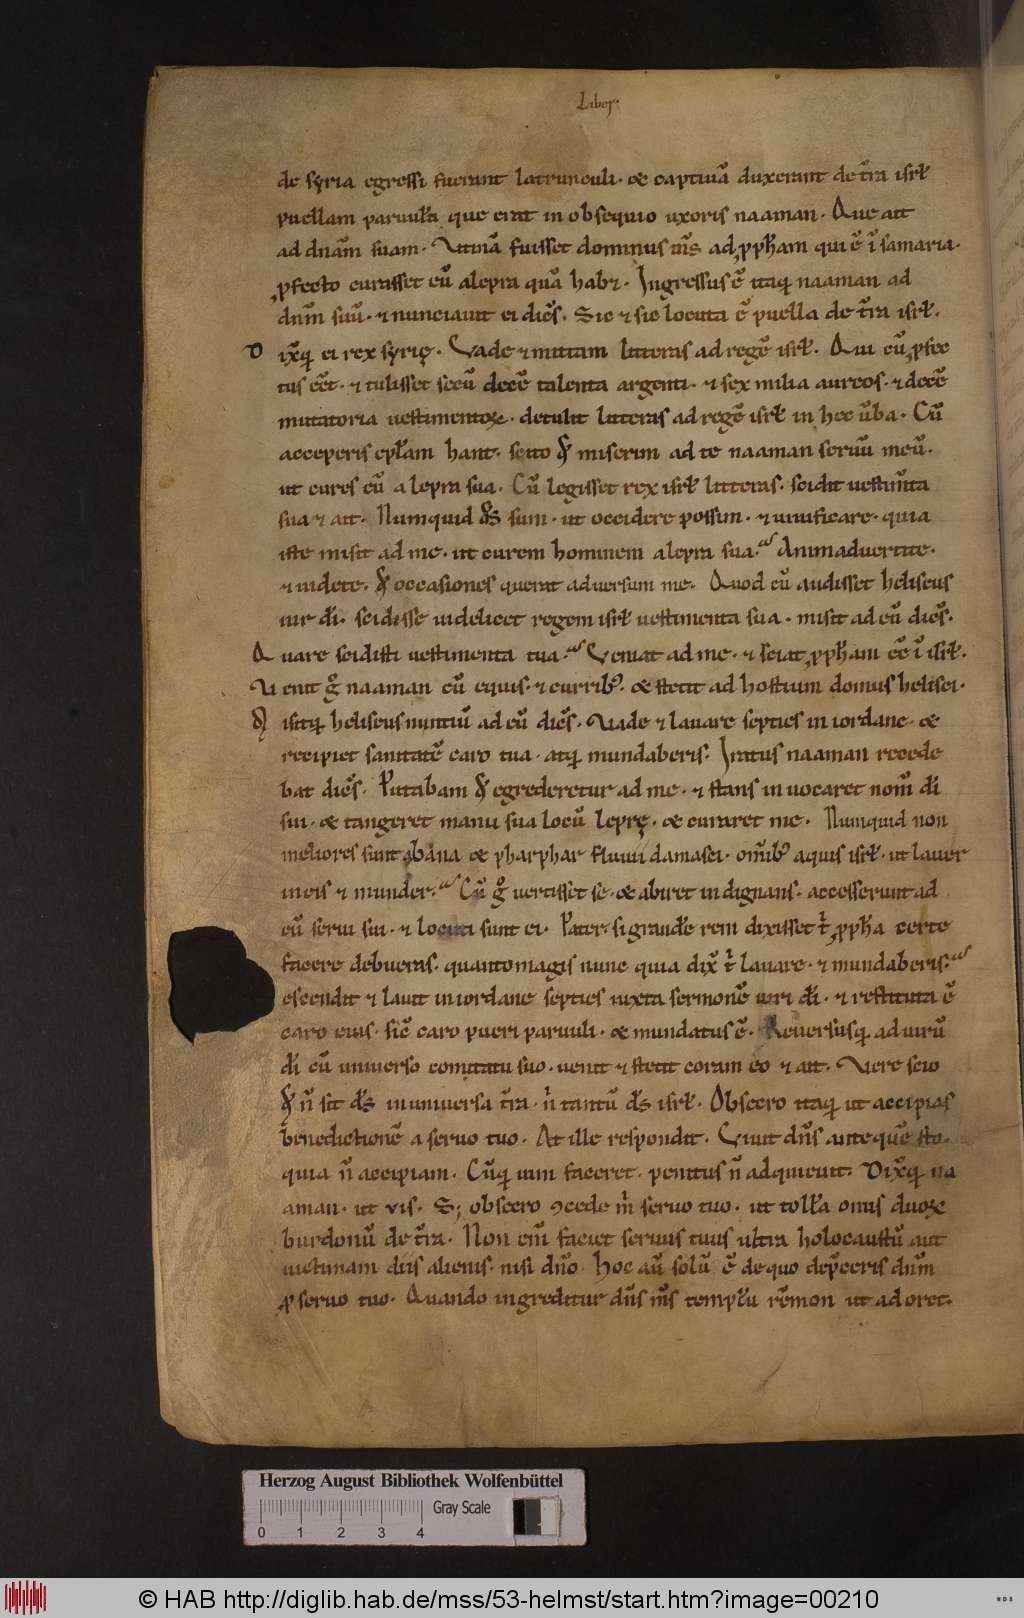 Liber.
de syria egressi fuerant latrunculi. & captiuā duxerant de t̄ra isrł
puellam paruulā que erat in obsequio uxoris naaman. Que ait
ad dnām suam. Utinā fuisset dominus m̄s ad ꝓph̄am qui ē ī samaria.
ꝓfecto curasset eū a lepra quā habet. Ingressus ē itaq; naaman ad
dnm̄ suū. ⁊ nunciauit ei dicēs. Sic ⁊ sic locuta ē puella de t̄ra isrł.
Dix̄q; ei rex syrię. Vade ⁊ mittam litteras ad regē isrł. Qui cū ꝓfec
tus eēt. ⁊ tulisset secū decē talenta argenti. ⁊ sex milia aureos. ⁊ decē
mutatoria uestimentoꝝ. detulit litteras ad regē isrł in hec ūba. Cū
acceperis epłam hanc. scito qđ miserim ad te naaman seruū meū.
ut cures eū a lepra sua. Cū legisset rex isrł litteras. scidit uestim̄ta
sua ⁊ ait. Numquid ds̄ sum. ut occidere possim. ⁊ uiuificare. quia
iste misit ad me. ut curem hominem a lepra sua. Animaduertite.
⁊ uidete. qđ occasiones querat aduersum me. Quod cū audisset heliseus
uir dī. scidisse uidelicet regem isrł uestimenta sua. misit ad eū dicēs.
Quare scidisti uestimenta tua. Veniat ad me. ⁊ sciat ꝓph̄am eē ī isrł.
Venit g̊ naaman cū equis. ⁊ curribꝰ. & stetit ad hostium domus helisei.
Misitq; heliseus nuntiū ad eū dicēs. Vade ⁊ lauare septies in iordane. &
recipiet sanitatē caro tua. atq; mundaberis. Iratus naaman recede
bat dicēs. Putabam qđ egrederetur ad me. ⁊ stans inuocaret nom̄ dī
sui. & tangeret manu sua locū lepręˌ. & curaret me. Numquid non
meliores sunt abana & pharphar fluuii damasci. om̄ibꝰ aquis isrł. ut lauer
in eis ⁊ munder. Cū g̊ uertisset se. & abiret indignans. accesserunt ad
eū serui sui. ⁊ locuti sunt ei. Pater. si grandē rem dixisset t̄ ꝓph̄a certe
facere debueras. quantomagis nunc quia dix̄ t̄ lauare. ⁊ mundaberis.
escendit ⁊ lauit in iordane septies iuxta sermonē uiri dī. ⁊ restituta ē
caro eius. sic̄ caro pueri paruuli. & mundatus ē. Reuersusq; ad uirū
dī cū uniuerso comitatu suo. uenit ⁊ stetit coram eo ⁊ ait. Vere scio
qđ n̄ sit ds̄ in uniuersa t̄ra. n̄ tantū ds̄ isrł. Obsecro itaq; ut accipias
benedictionē a seruo tuo. At ille respondit. Viuit dn̄s ante quē sto.
quia n̄ accipiam. Cūq; uim faceret. penitus n̄ adquieuit. Dix̄q; na
aman. ut vis. S; obsecro ꝯcede m̄ seruo tuo. ut tollā onus duoꝝ
burdonū de t̄ra. Non em̄ faciet seruus tuus ultra holocaustū aut
uictimam diis alienis. nisi dn̄o. Hoc aū solū ē de quo dep̄ceris dnm̄
ꝓ seruo tuo. Quando ingreditur dn̄s m̄s templū remmon ut adoret.
Herzog August Bibliothek Wolfenbüttel
Gray Scale
0 1 2 3 4
© HAB http://diglib.hab.de/mss/53-helmst/start.htm?image=00210